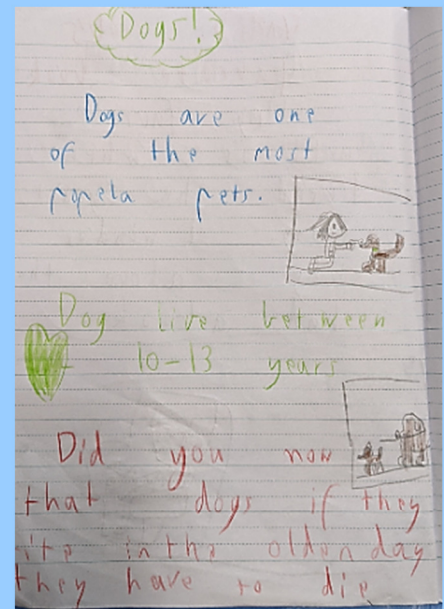 Dogs!
Dogs are one
of the most
popela pets.
Dog live between
10-13 years
Did you now
that dogs if they
in the olden day
they have to die